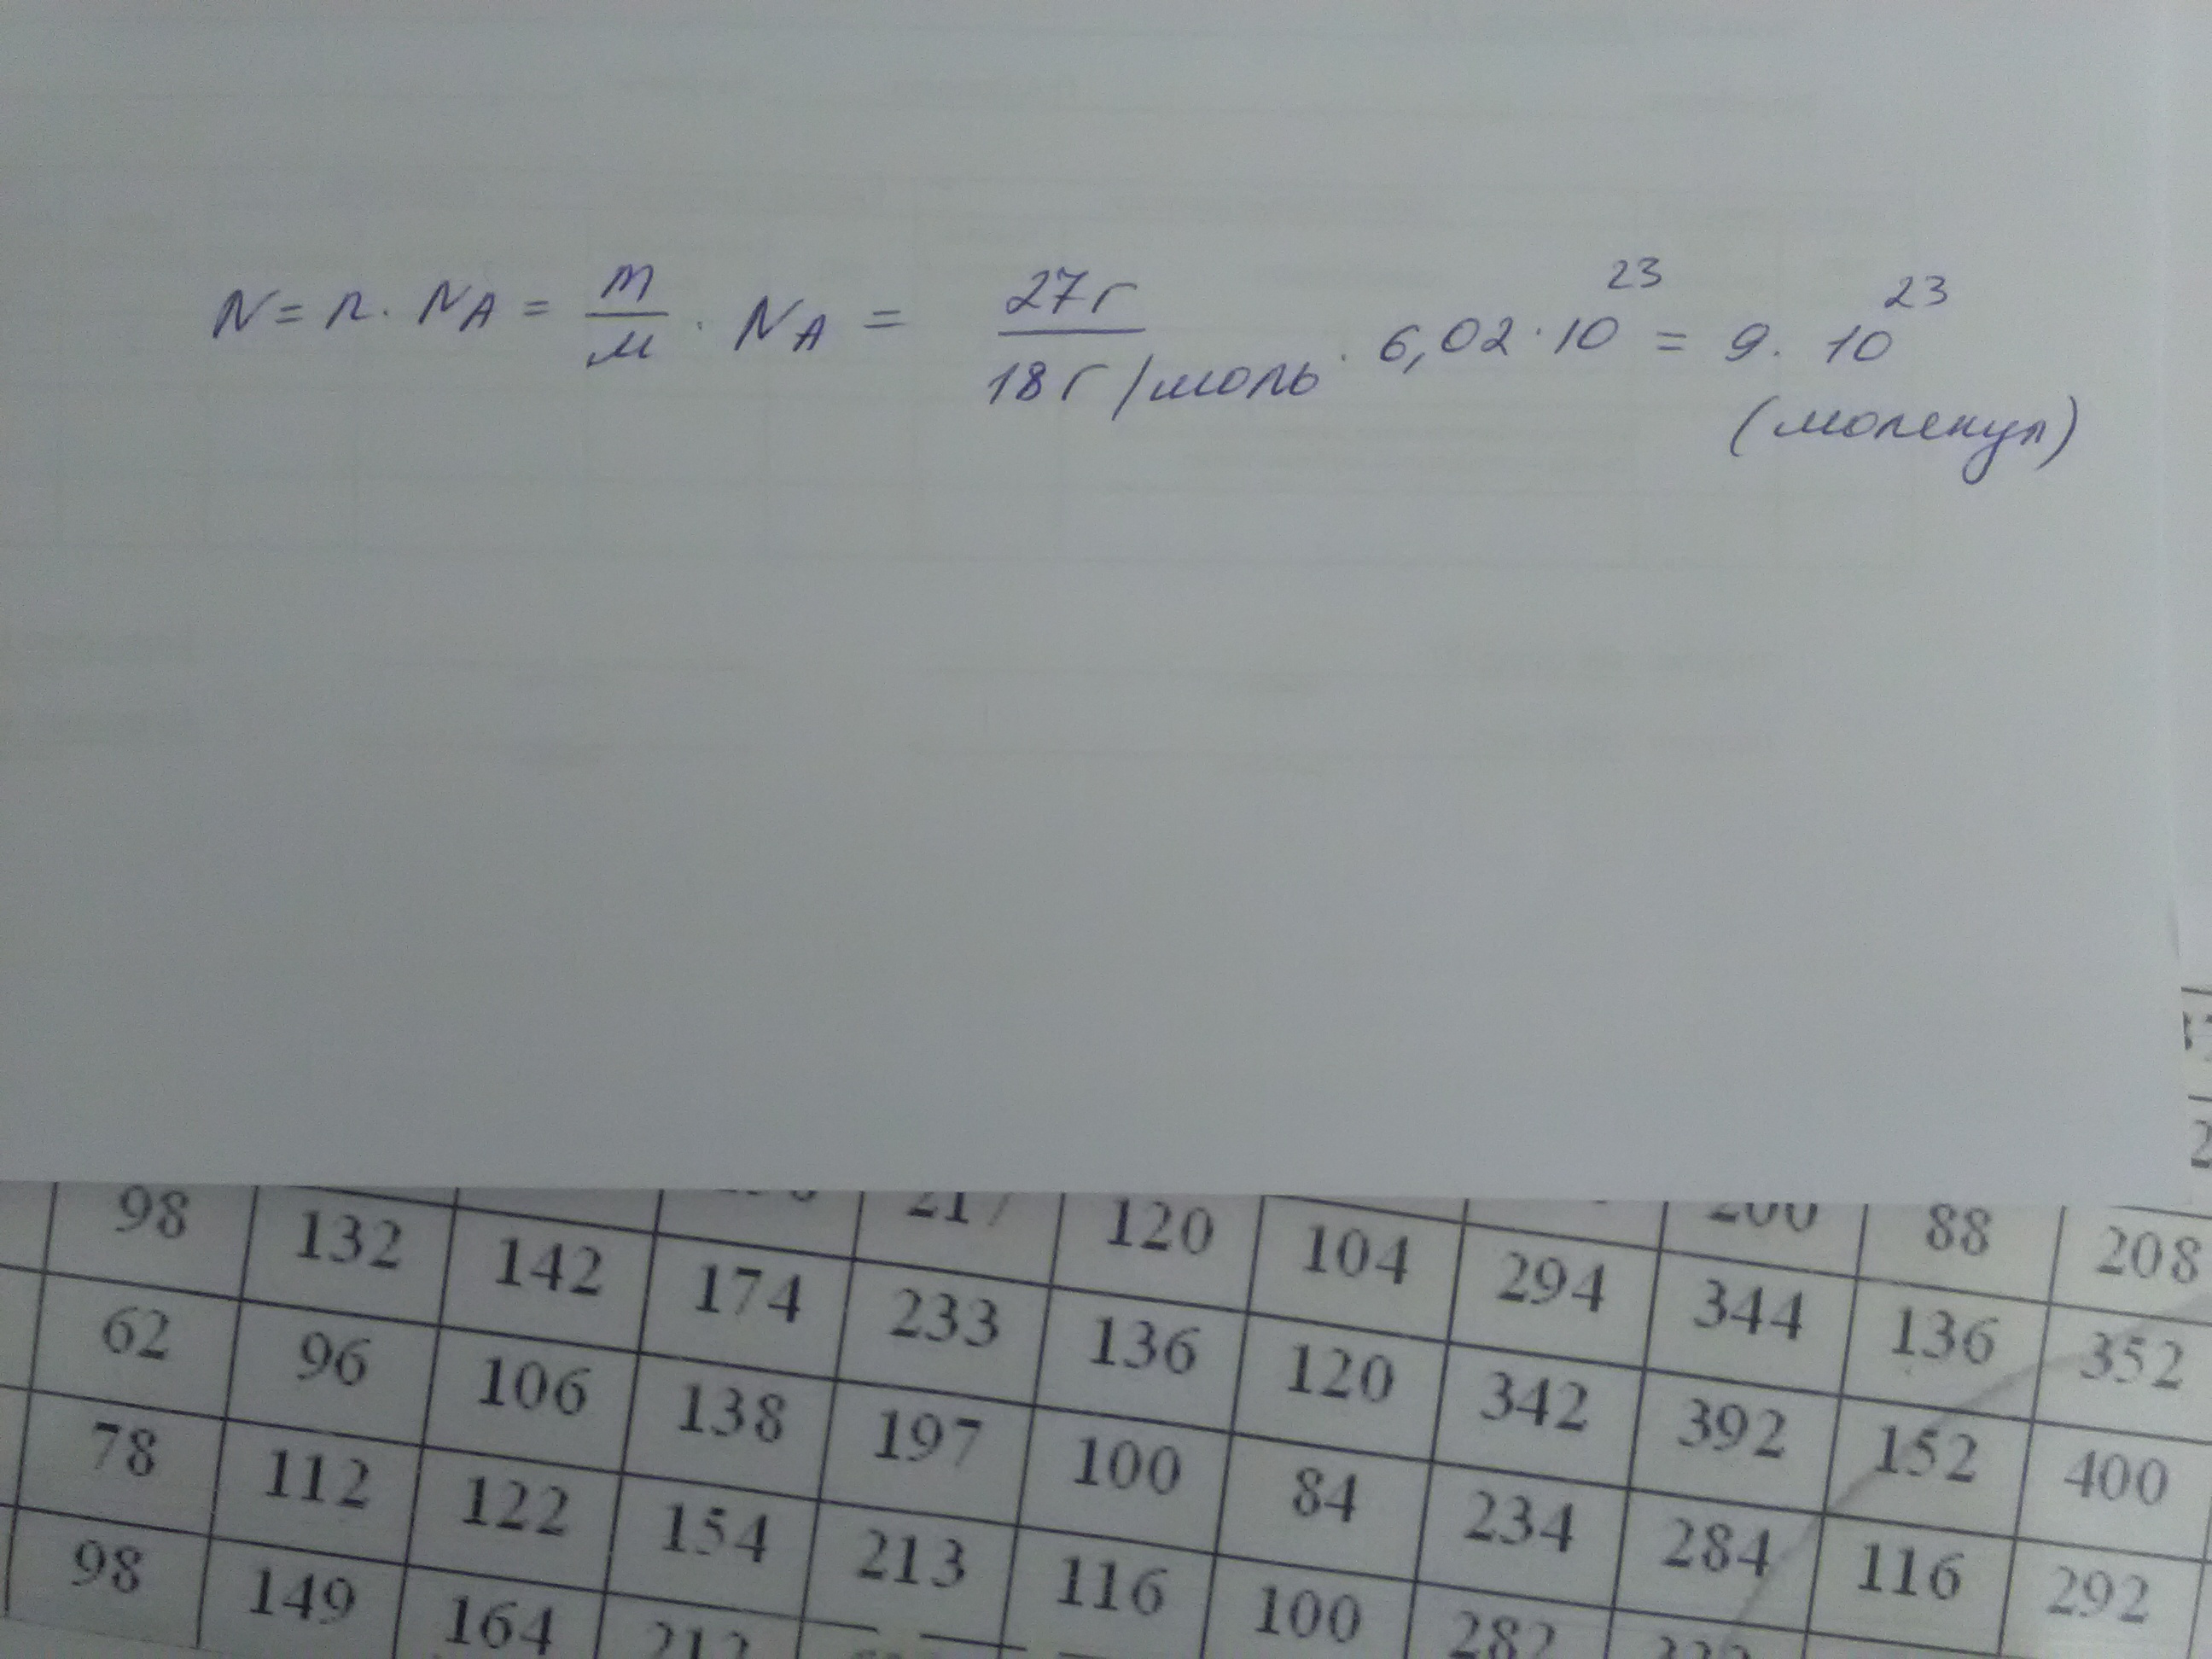 N = n · N_A = m/M · N_A = 27г / 18г/моль · 6,02 · 10^23 = 9 · 10^23
(молекул)
98 132 142 174 217 120 104 294 200 88 208
62 96 106 138 233 136 120 342 344 136 352
78 112 122 154 197 100 84 234 392 152 400
98 149 164 212 213 116 100 282 284 116 292